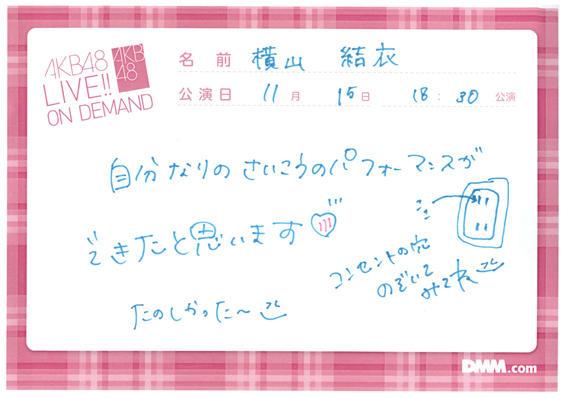 AKB48
LIVE!!
ON DEMAND
AKB
48
名前 横山 結衣
公演日 11月 15日 18:30 公演
自分なりの さいこうの パフォーマンスが
できたと思います
ココ
コンセントの穴
のぞいて
みてね
たのしかった〜
DMM.com